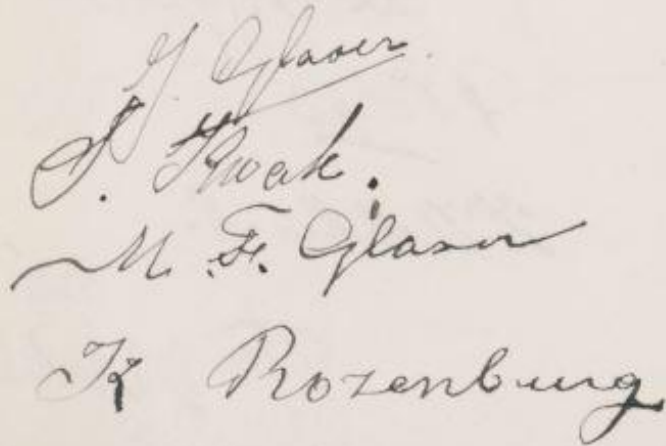 G. Glaser.
S. Kwak.
M. F. Glaser
K Rozenburg